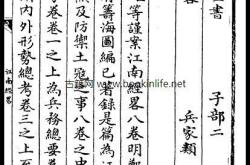 書
子部二
兵家類
等謹案江南經畧八卷明鄭
籌海圖編已著録是篇為江
及防禦土寇之事八卷之中
卷卷一之上為兵務總要
内外形勢總考卷三之上至
江南經畧
www.bookinlife.net